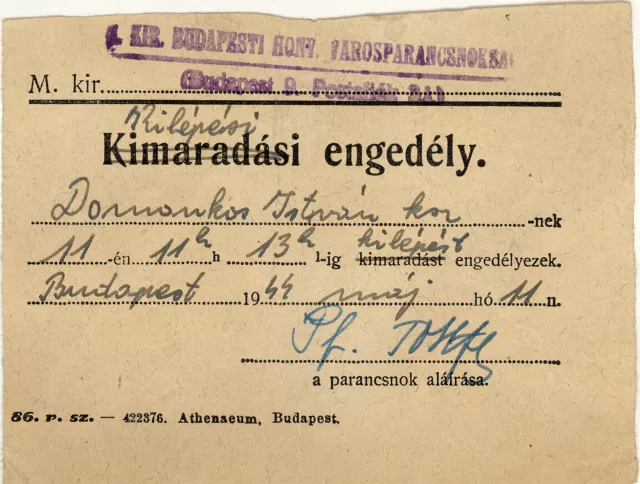 M. KIR. BUDAPESTI HONV. VÁROSPARANCSNOKSÁG
(Budapest 9. Postafiók 24.)
M. kir.
Kilépési
Kimaradási engedély.
Domonkos István ksz -nek
11 -én 11h h 13h l-ig kimaradást kilépést engedélyezek.
Budapest 1944 máj hó 11 n.
Pf.
a parancsnok aláírása.
86. r. sz. — 422376. Athenaeum, Budapest.